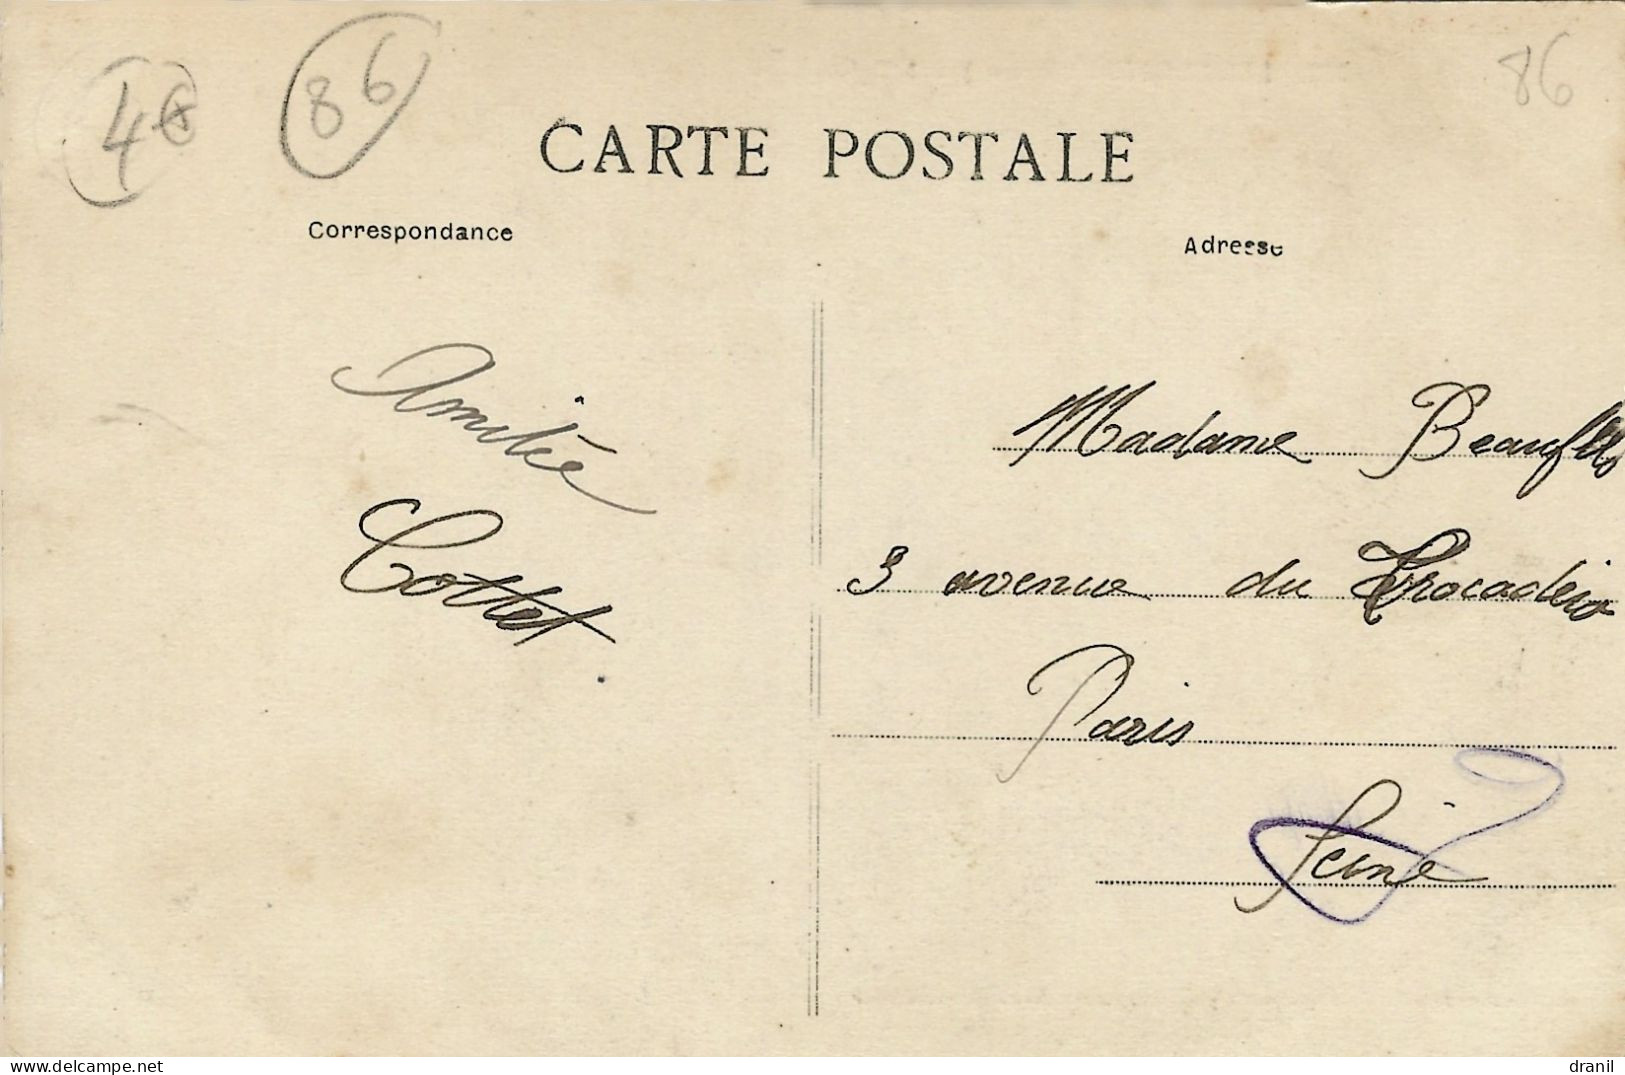 4€
86
86
CARTE POSTALE
Correspondance
Adresse
Amitié
Cottet.
Madame Beaufils
3 avenue du Trocadéro
Paris
Seine
www.delcampe.net
dranil